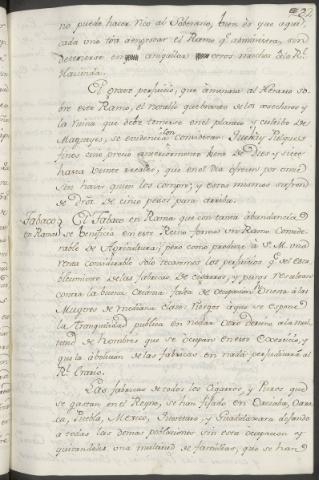 22
no puede hacer rico al Soberano, bien de que aqui
cada uno tira a engrosar el Ramo qe. administra, sin
detenerse en aniquilar otros muchos de la Rl.
Hacienda.
El grave perjuicio, que amenaza al Herario so
bre este Ramo, el notable quebranto de los cosecheros y
la ruina que debe temerse en el plantío y cultibo de
Magueyes, se evidencia con considerar Pulques
finos cuio precio anteriormente hera de Diez y siete
hasta veinte reales, que en el dia ofrecen por cinco
sin haver quien los compre; y estos mismos sufren
se dros. de cinco pesos para arriba.
Tabaco El Tabaco en Rama que con tanta abundancia
en Rama se beneficia en este Reino forma un Ramo Conside
rable de Agricultura; pero como produce a S. M. una
renta considerable solo tocaremos los perjuicios qe. del esta
blecimiento de las fabricas de cigarros, y puros resultan
contra la buena
Mugeres de mediana clase: Riesgos a que se expone
la tranquilidad publica en no dar otro destino a la mul
titud de hombres que se ocupan en este Exercicio, y
que la abolicion de las fabricas en nada perjudicará al
Rl. Erario.
Las fabricas de todos los Cigarros, y Puros que
se gastan en el Reyno, se han fijado en Orizaba, Oaxa
ca, Puebla, Mexico, Queretaro, y Guadalaxara dejando
a todas las demas poblaciones sin esta ocupacion y
quitandoles una multitud de familias, que se han